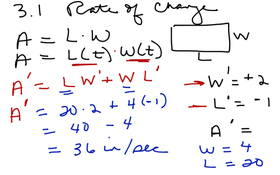 3.1 Rate of change
A = L · W
A = L(t) · W(t)
A' = L W' + W L'
A' = 20 · 2 + 4(-1)
= 40 - 4
= 36 in/sec
W
L
→ W' = +2
→ L' = -1
A' =
W = 4
L = 20